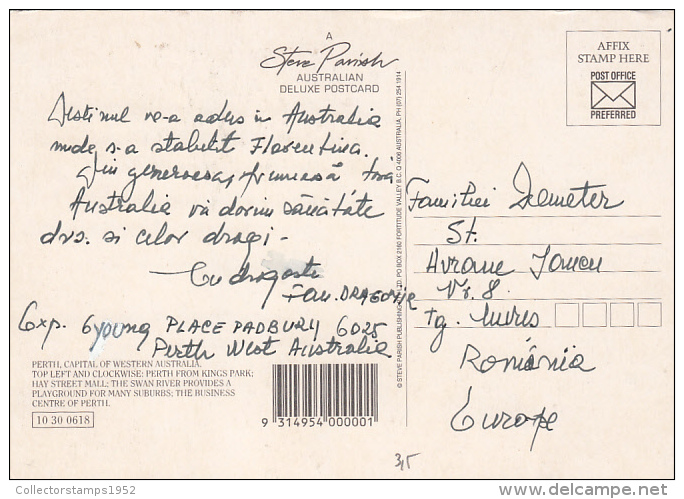 A
Steve Parish
AUSTRALIAN
DELUXE POSTCARD
AFFIX
STAMP HERE
POST OFFICE
PREFERRED
Destinul ne-a adus in Australia
unde s-a stabilit Florentina.
Din generoasa, frumoasă țară
Australia vă dorim sănătate
dvs. si celor dragi -
Cu dragoste
Fam. DRAGOMIR
Exp. 6 young PLACE PADBURY 6025
Perth West Australia
Familiei Demeter
St.
Avrame Iancu
Nr. 8.
Tg. Mureș
România
Europe
© STEVE PARISH PUBLISHING PTY LTD. PO BOX 2160 FORTITUDE VALLEY B.C. Q 4006 AUSTRALIA. PH (07) 254 1914
PERTH, CAPITAL OF WESTERN AUSTRALIA.
TOP LEFT AND CLOCKWISE: PERTH FROM KINGS PARK;
HAY STREET MALL; THE SWAN RIVER PROVIDES A
PLAYGROUND FOR MANY SUBURBS; THE BUSINESS
CENTRE OF PERTH.
10 30 0618
9 314954 000001
3,5
Collectorstamps1952
delcampe.net